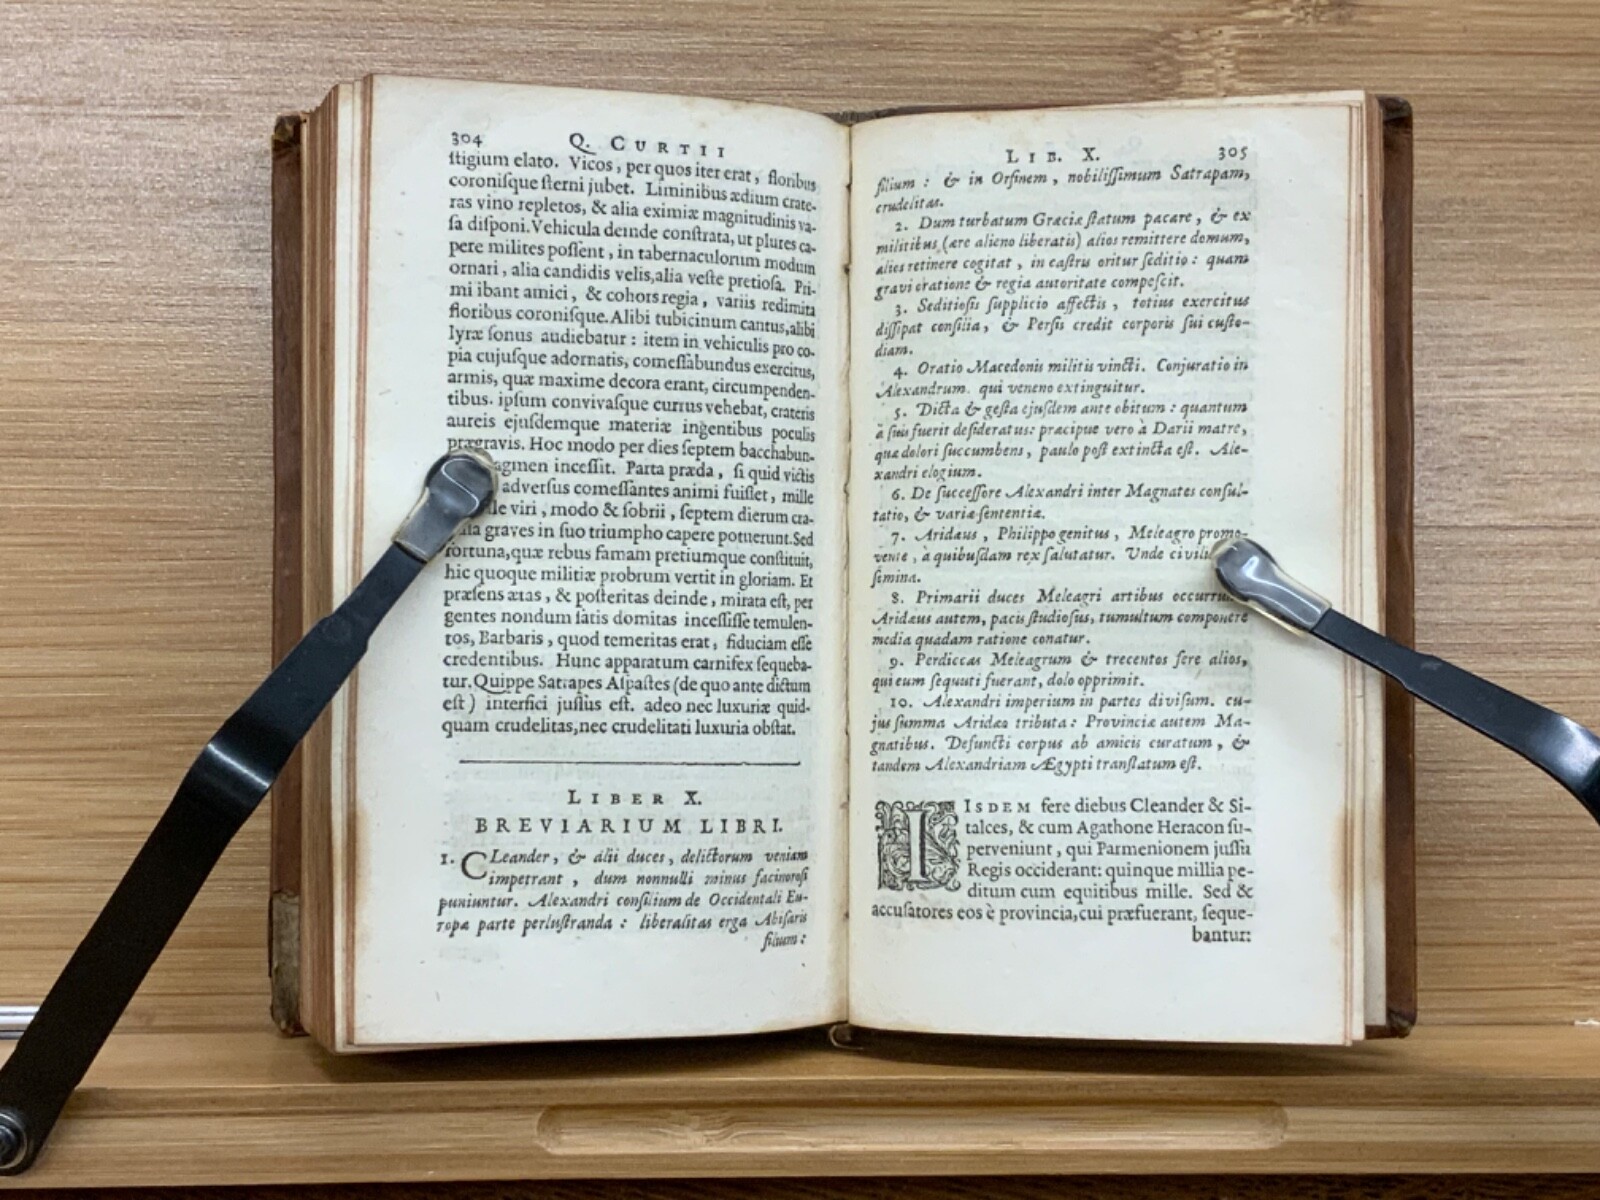 304 Q. CURTII
ſtigium elato. Vicos, per quos iter erat, floribus
coroniſque ſterni jubet. Liminibus ædium crate-
ras vino repletos, & alia eximiæ magnitudinis va-
ſa diſponi. Vehicula deinde conſtrata, ut plures ca-
pere milites poſſent, in tabernaculorum modum
ornari, alia candidis velis, alia veſte pretioſa. Pri-
mi ibant amici, & cohors regia, variis redimita
floribus coroniſque. Alibi tubicinum cantus, alibi
lyræ ſonus audiebatur: item in vehiculis pro co-
pia cujuſque adornatis, comeſſabundus exercitus,
armis, quæ maxime decora erant, circumpenden-
tibus. ipſum convivaſque currus vehebat, crateris
aureis ejuſdemque materiæ ingentibus poculis
prægravis. Hoc modo per dies ſeptem bacchabun-
agmen inceſſit. Parta præda, ſi quid victis
adverſus comeſſantes animi fuiſſet, mille
viri, modo & ſobrii, ſeptem dierum cra-
graves in ſuo triumpho capere potuerunt. Sed
fortuna, quæ rebus famam pretiumque conſtituit,
hic quoque militiæ probrum vertit in gloriam. Et
præſens ætas, & poſteritas deinde, mirata eſt, per
gentes nondum ſatis domitas inceſſiſſe temulen-
tos, Barbaris, quod temeritas erat, fiduciam eſſe
credentibus. Hunc apparatum carnifex ſequeba-
tur. Quippe Satrapes Aſpaſtes (de quo ante dictum
eſt) interfici juſſus eſt. adeo nec luxuriæ quid-
quam crudelitas, nec crudelitati luxuria obſtat.
LIBER X.
BREVIARIUM LIBRI.
1. CLeander, & alii duces, delictorum veniam
impetrant, dum nonnulli minus facinoroſi
puniuntur. Alexandri conſilium de Occidentali Eu-
ropæ parte perluſtranda: liberalitas erga Abiſaris
filium:
LIB. X. 305
filium: & in Orſinem, nobiliſſimum Satrapam,
crudelitas.
2. Dum turbatum Græciæ ſtatum pacare, & ex
militibus (ære alieno liberatis) alios remittere domum,
alios retinere cogitat, in caſtris oritur ſeditio: quam
gravi oratione & regia autoritate compeſcit.
3. Seditioſis ſupplicio affectis, totius exercitus
diſſipat conſilia, & Perſis credit corporis ſui cuſto-
diam.
4. Oratio Macedonis militis vincti. Conjuratio in
Alexandrum. qui veneno extinguitur.
5. Dicta & geſta ejuſdem ante obitum: quantum
à ſuis fuerit deſideratus: præcipue vero à Darii matre,
quæ dolori ſuccumbens, paulo poſt extincta eſt. Ale-
xandri elogium.
6. De ſucceſſore Alexandri inter Magnates conſul-
tatio, & variæ ſententiæ.
7. Aridæus, Philippo genitus, Meleagro promo-
vente, à quibuſdam rex ſalutatur. Unde civili
ſemina.
8. Primarii duces Meleagri artibus occurrunt
Aridæus autem, pacis ſtudioſus, tumultum componere
media quadam ratione conatur.
9. Perdiccas Meleagrum & trecentos fere alios,
qui eum ſequuti fuerant, dolo opprimit.
10. Alexandri imperium in partes diviſum. cu-
jus ſumma Aridæo tributa: Provinciæ autem Ma-
gnatibus. Defuncti corpus ab amicis curatum, &
tandem Alexandriam Ægypti translatum eſt.
IISDEM fere diebus Cleander & Si-
talces, & cum Agathone Heracon ſu-
perveniunt, qui Parmenionem juſſu
Regis occiderant: quinque millia pe-
ditum cum equitibus mille. Sed &
accuſatores eos è provincia, cui præfuerant, ſeque-
bantur: